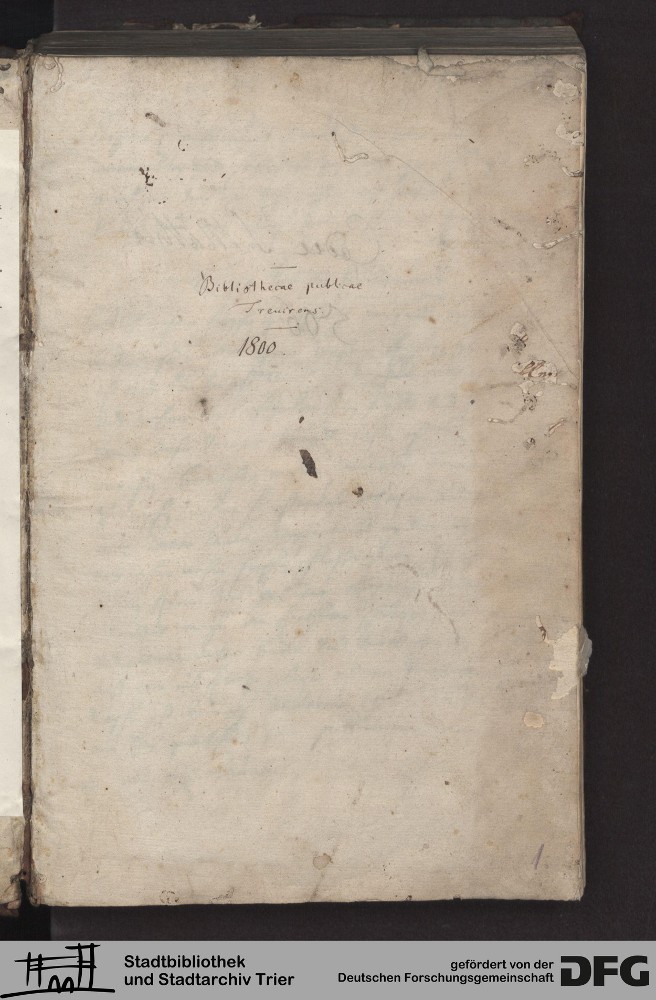 Bibliothecae publicae
Trevirens:
1800.
1
Stadtbibliothek
und Stadtarchiv Trier
gefördert von der
Deutschen Forschungsgemeinschaft
DFG